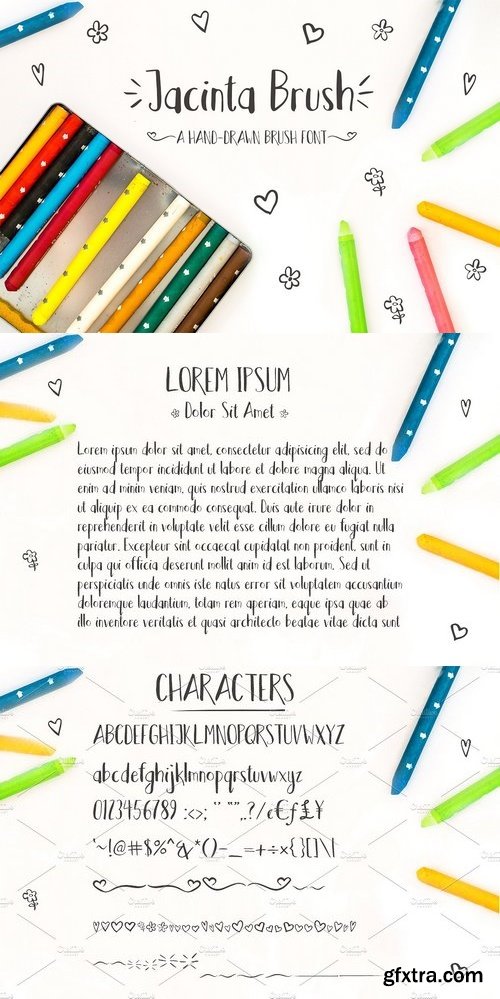 Jacinta Brush
A HAND-DRAWN BRUSH FONT
LOREM IPSUM
Dolor Sit Amet
Lorem ipsum dolor sit amet, consectetur adipiscing elit, sed do
eiusmod tempor incididunt ut labore et dolore magna aliqua. Ut
enim ad minim veniam, quis nostrud exercitation ullamco laboris nisi
ut aliquip ex ea commodo consequat. Duis aute irure dolor in
reprehenderit in voluptate velit esse cillum dolore eu fugiat nulla
pariatur. Excepteur sint occaecat cupidatat non proident, sunt in
culpa qui officia deserunt mollit anim id est laborum. Sed ut
perspiciatis unde omnis iste natus error sit voluptatem accusantium
doloremque laudantium, totam rem aperiam, eaque ipsa quae ab
illo inventore veritatis et quasi architecto beatae vitae dicta sunt
CHARACTERS
ABCDEFGHIJKLMNOPQRSTUVWXYZ
abcdefghijklmnopqrstuvwxyz
0123456789 :<>; '' “”,.?/¢€ƒ£¥
'~!@#$%^&*()-_=+÷×{}[]\|
gfxtra.com